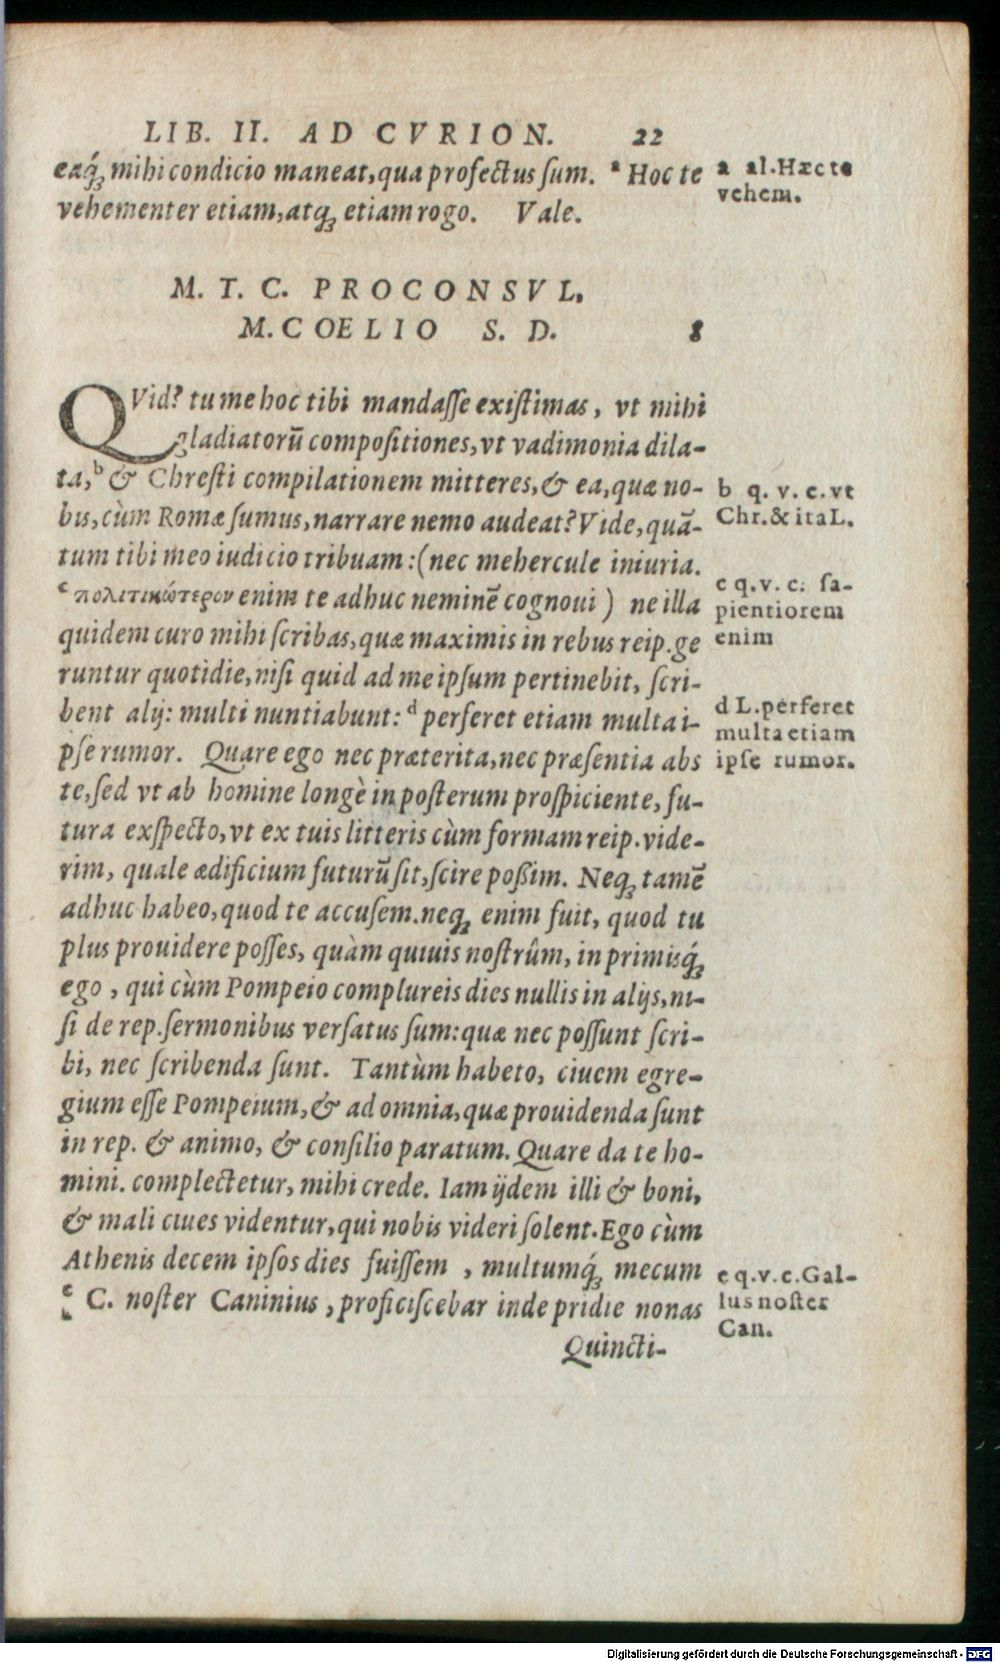 LIB. II. AD CVRION. 22
eaq́ꝫ mihi condicio maneat, qua profectus ſum. ᵃ Hoc te
vehementer etiam, atqꝫ etiam rogo. Vale.
a al. Hæc te
vehem.
M. T. C. PROCONSVL.
M. COELIO S. D. 8
QVid? tu me hoc tibi mandaſſe exiſtimas, vt mihi
gladiatorū compoſitiones, vt vadimonia dila-
ta, ᵇ & Chreſti compilationem mitteres, & ea, quæ no-
bis, cùm Romæ ſumus, narrare nemo audeat? Vide, quā-
tum tibi meo iudicio tribuam: (nec mehercule iniuria.
ᶜ πολιτικώτερον enim te adhuc neminē cognoui) ne illa
quidem curo mihi ſcribas, quæ maximis in rebus reip. ge
runtur quotidie, niſi quid ad me ipſum pertinebit, ſcri-
bent alij: multi nuntiabunt: ᵈ perferet etiam multa i-
pſe rumor. Quare ego nec præterita, nec præſentia abs
te, ſed vt ab homine longè in poſterum proſpiciente, fu-
tura exſpecto, vt ex tuis litteris cùm formam reip. vide-
rim, quale ædificium futurū ſit, ſcire poßim. Neqꝫ tamē
adhuc habeo, quod te accuſem. neqꝫ enim fuit, quod tu
plus prouidere poſſes, quàm quiuis noſtrûm, in primisq́ꝫ
ego, qui cùm Pompeio complureis dies nullis in alijs, ni-
ſi de rep. ſermonibus verſatus ſum: quæ nec poſſunt ſcri-
bi, nec ſcribenda ſunt. Tantùm habeto, ciuem egre-
gium eſſe Pompeium, & ad omnia, quæ prouidenda ſunt
in rep. & animo, & conſilio paratum. Quare da te ho-
mini. complectetur, mihi crede. Iam ijdem illi & boni,
& mali ciues videntur, qui nobis videri ſolent. Ego cùm
Athenis decem ipſos dies fuiſſem, multumq́ꝫ mecum
ᵉ C. noſter Caninius, proficiſcebar inde pridie nonas
Quincti-
b q. v. c. vt
Chr. & ita L.
c q. v. c. ſa-
pientiorem
enim
d L. perferet
multa etiam
ipſe rumor.
e q. v. c. Gal-
lus noſter
Can.
Digitalisierung gefördert durch die Deutsche Forschungsgemeinschaft - DFG